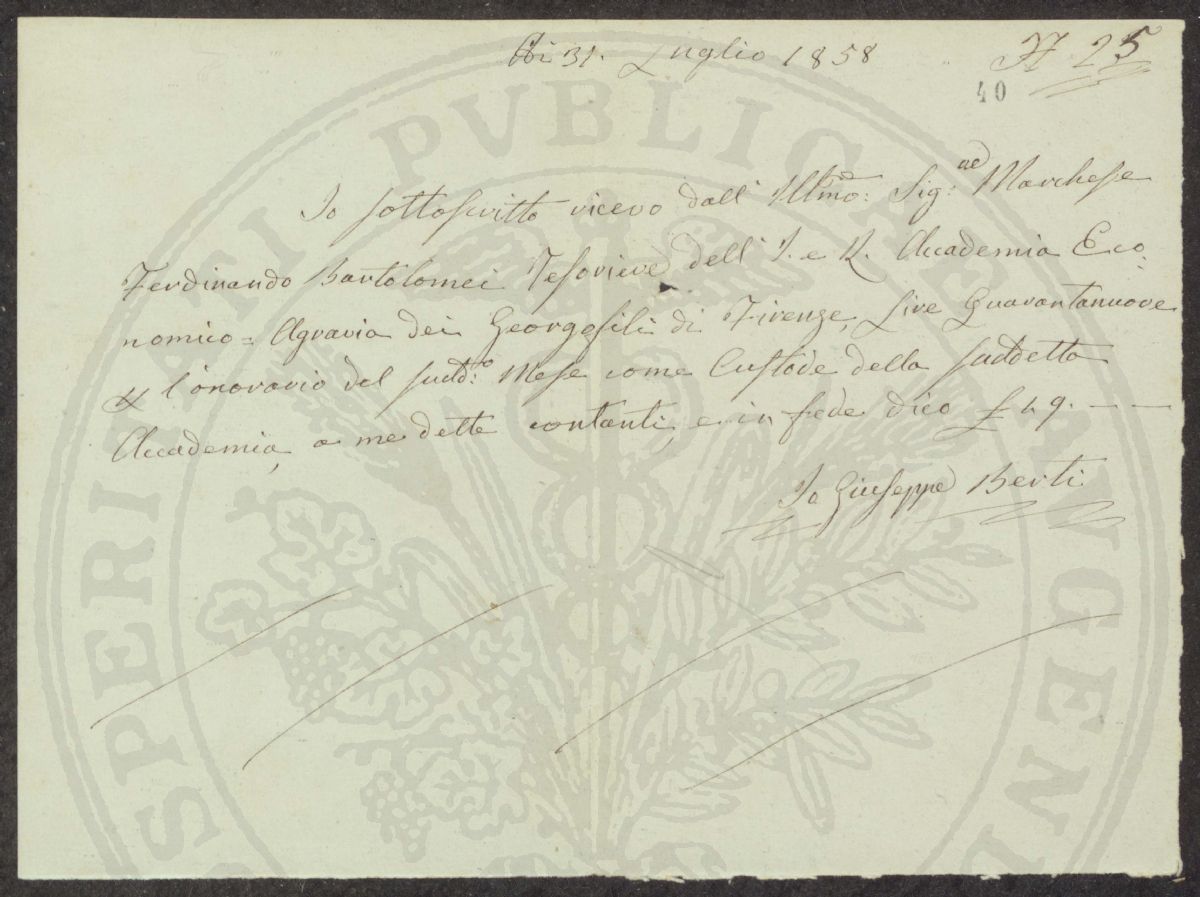 Adi 31. Luglio 1858
N 25
40
Io sottoscritto ricevo dall' Illmo: Sig:re Marchese
Ferdinando Bartolomei Tesoriere dell' I. e R. Accademia Eco-
nomico = Agraria dei Georgofili di Firenze, Lire Quarantanuove
l'onorario del sudd:o Mese come Custode della suddetta
Accademia, a me dette contanti, e in fede dico £ 49. — —
Io Giuseppe Berti
PROSPERITATI PVBLICAE AVGENDAE